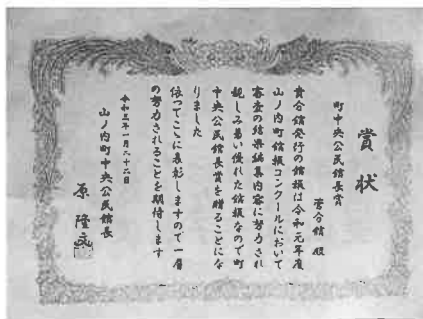 賞状
町中央公民館長賞
菅合館 殿
貴合館発行の館報は令和元年度
山ノ内町館報コンクールにおいて
審査の結果編集内容に努力され
親しみ易い優れた館報なので町
中央公民館長賞を贈ることにな
りました
依ってここに表彰しますので一層
の努力されることを期待します
令和三年一月二十六日
山ノ内町中央公民館長
原 隆